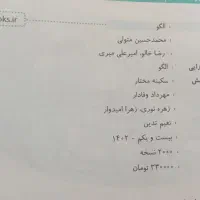 oks.ir
• الگو
• محمدحسین متولی
• رضا خالو، امیرعلی میری
رایی • الگو
ش • سکینه مختار
• مهرداد وفادار
• زهره نوری، زهرا امیدوار
• نعیم تدین
• بیست و یکم - ۱۴۰۲
• ۲۰۰۰ نسخه
• ۲۳۰۰۰۰ تومان